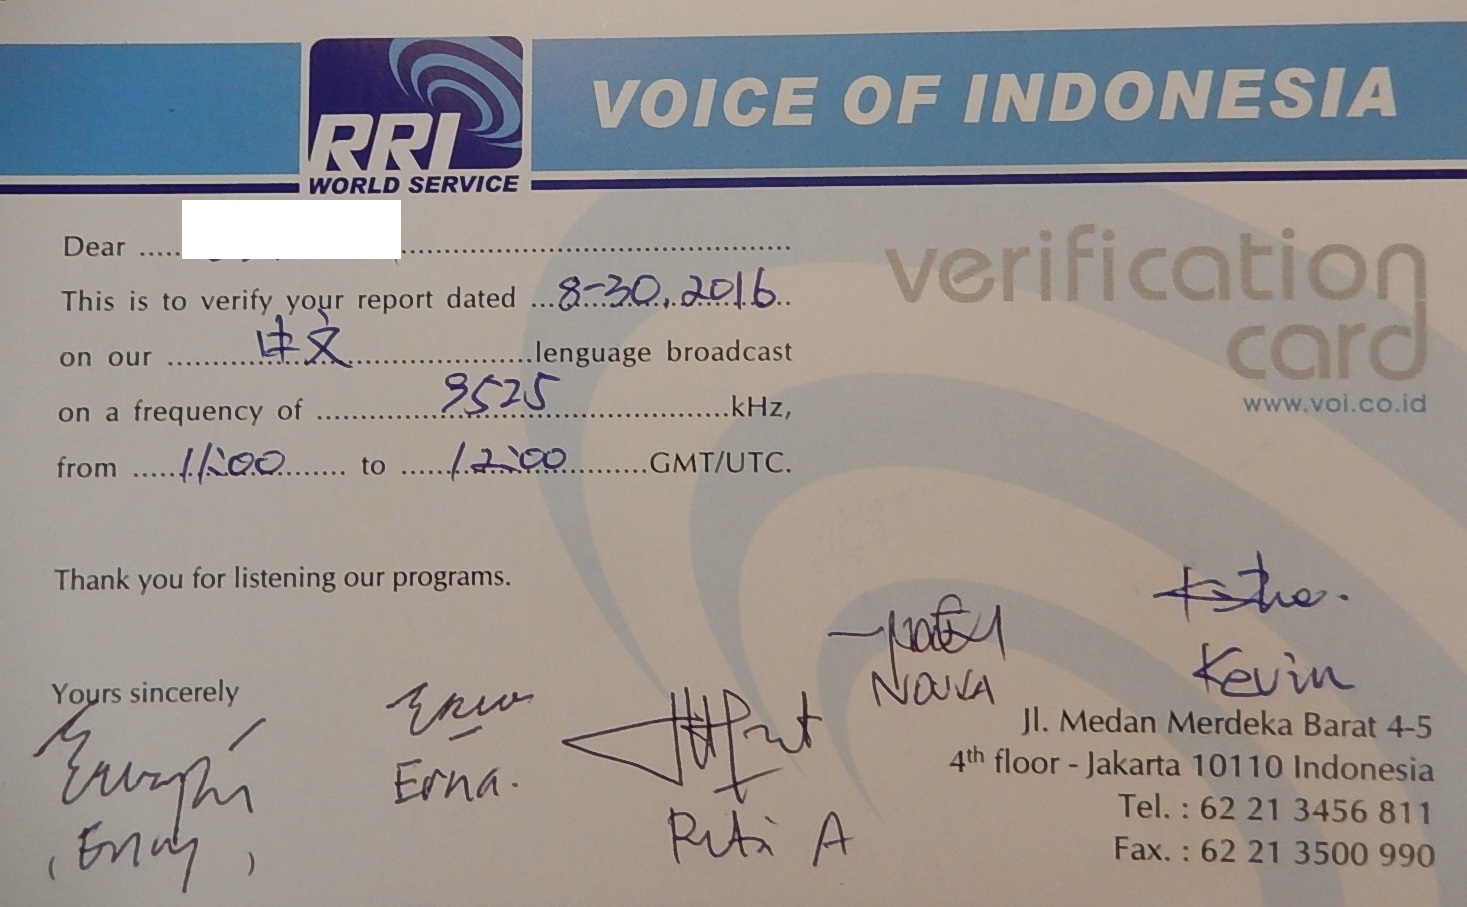 RRI
WORLD SERVICE
VOICE OF INDONESIA
Dear ..... ..........
This is to verify your report dated ...8-30, 2016..
on our ..........中文..........lenguage broadcast
on a frequency of ..........9525..........kHz,
from .....11:00........ to .....12:00.........GMT/UTC.
verification
card
www.voi.co.id
Thank you for listening our programs.
Yours sincerely
Erna.
Rita A
NOUVA
Kevin
Jl. Medan Merdeka Barat 4-5
4th floor - Jakarta 10110 Indonesia
Tel. : 62 21 3456 811
Fax. : 62 21 3500 990